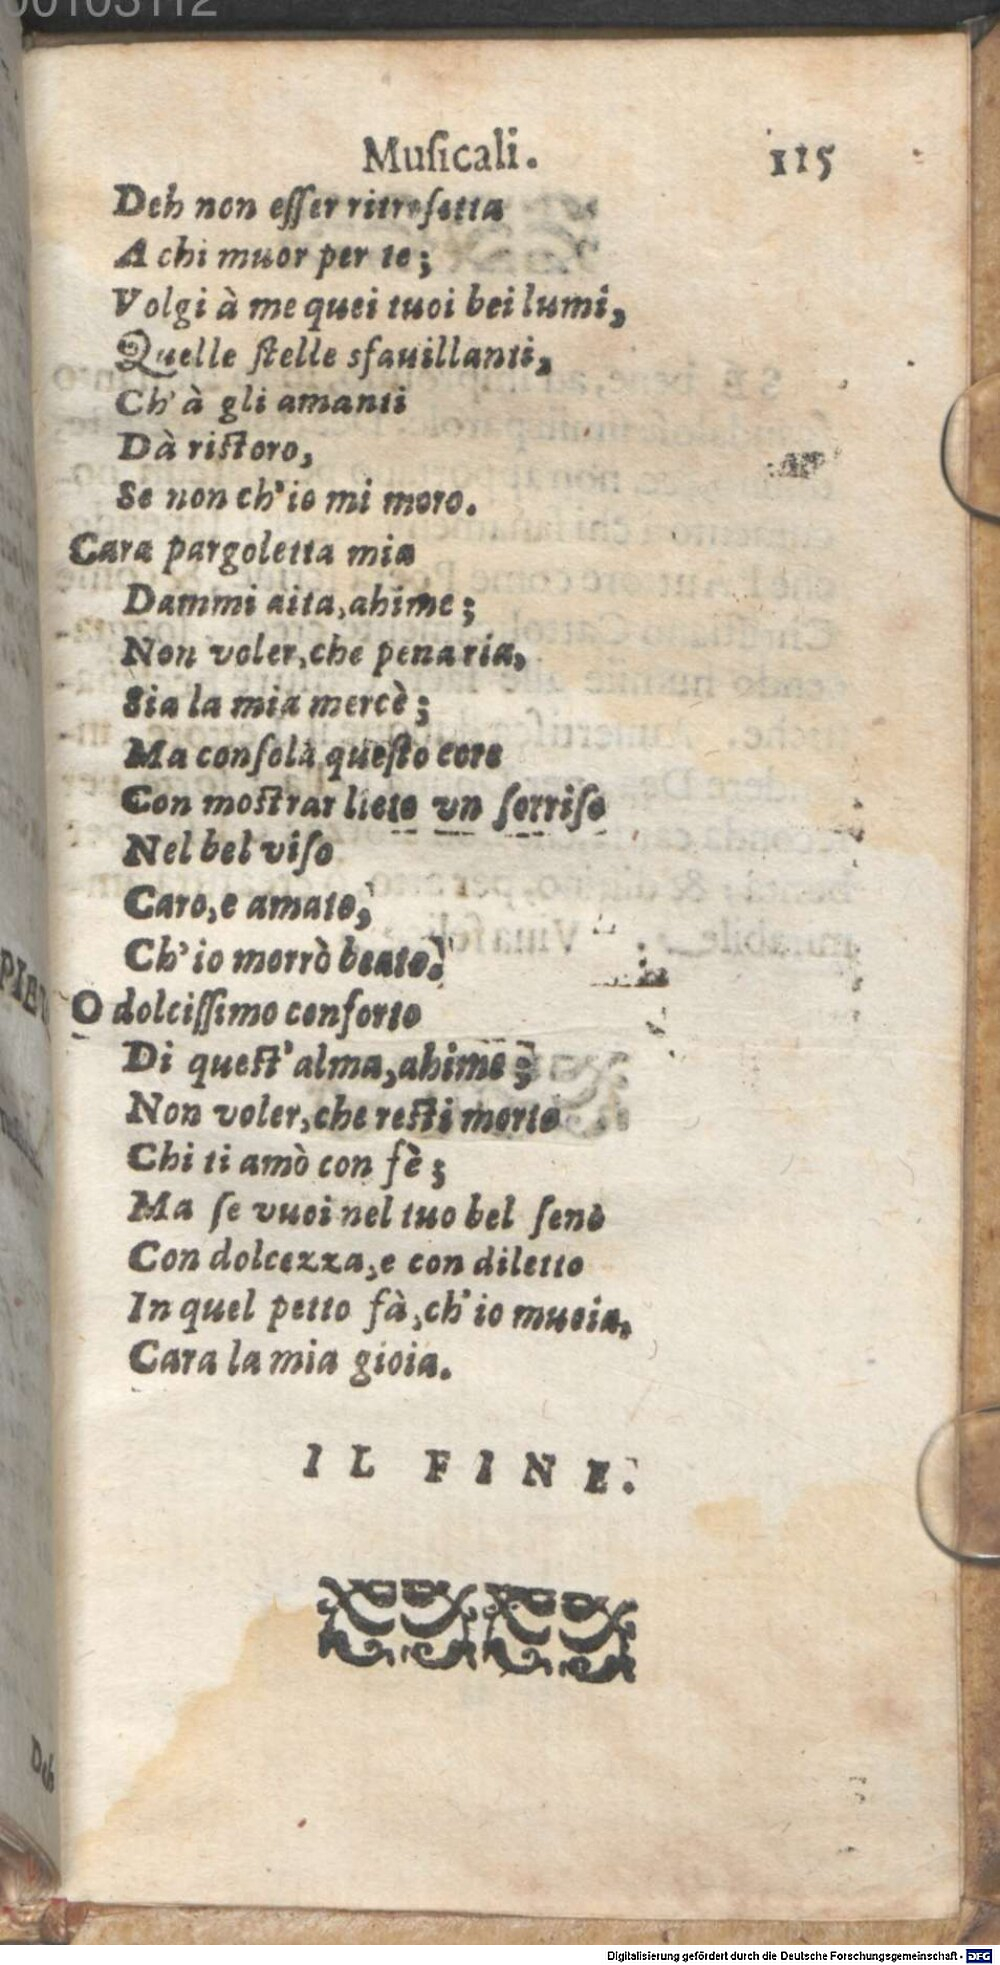 00103112
Muſicali. 115
Deh non eſſer ritroſetta
A chi muor per te;
Volgi à me quei tuoi bei lumi,
Quelle ſtelle sfauillanti,
Ch'à gli amanti
Dà riſtoro,
Se non ch'io mi moro.
Cara pargoletta mia
Dammi aita, ahime;
Non voler, che pena ria,
Sia la mia mercè;
Ma conſola queſto core
Con moſtrar lieto vn ſorriſo
Nel bel viſo
Caro, e amato,
Ch'io morrò beato.
O dolciſſimo conforto
Di queſt'alma, ahime;
Non voler, che reſti morto
Chi ti amò con fè;
Ma ſe vuoi nel tuo bel ſeno
Con dolcezza, e con diletto
In quel petto fà, ch'io muoia,
Cara la mia gioia.
IL FINE.
Deh
Digitalisierung gefördert durch die Deutsche Forschungsgemeinschaft - DFG